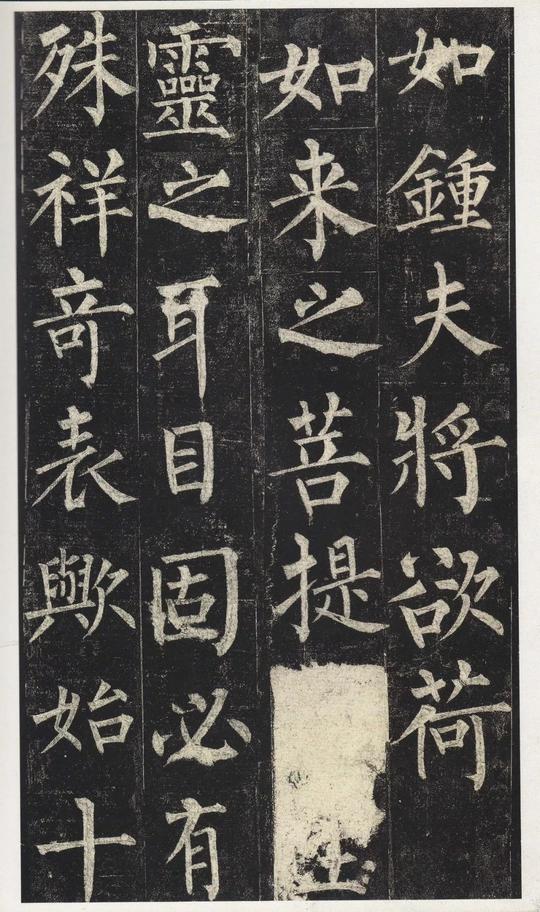 如鍾夫將欲荷
如来之菩提生
靈之耳目固必有
殊祥竒表歟始十